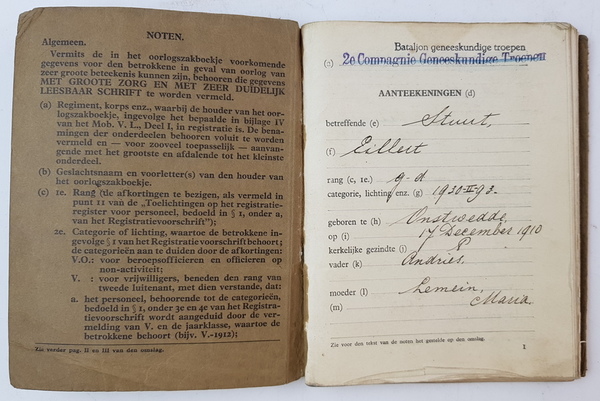 NOTEN.
Algemeen.
Vermits de in het oorlogszakboekje voorkomende
gegevens voor den betrokkene in geval van oorlog van
zeer groote beteekenis kunnen zijn, behooren die gegevens
MET GROOTE ZORG EN MET ZEER DUIDELIJK
LEESBAAR SCHRIFT te worden vermeld.
(a) Regiment, korps enz., waarbij de houder van het oor-
logszakboekje, ingevolge het bepaalde in bijlage IV
van het Mob. V. L., Deel I, in registratie is. De bena-
mingen der onderdeelen behooren voluit te worden
vermeld en — voor zooveel toepasselijk — aanvan-
gende met het grootste en afdalende tot het kleinste
onderdeel.
(b) Geslachtsnaam en voorletter(s) van den houder van
het oorlogszakboekje.
(c) 1e. Rang (de afkortingen te bezigen, als vermeld in
punt 11 van de „Toelichtingen op het registratie-
register voor personeel, bedoeld in § 1, onder a,
van het Registratievoorschrift");
2e. Categorie of lichting, waartoe de betrokkene in-
gevolge § 1 van het Registratievoorschrift behoort;
de categorieën aan te duiden door de afkortingen:
V.O.: voor beroepsofficieren en officieren op
non-activiteit;
V. : voor vrijwilligers, beneden den rang van
tweede luitenant, met dien verstande, dat:
a. het personeel, behoorende tot de categorieën,
bedoeld in § 1, onder 3e en 4e van het Registra-
tievoorschrift wordt aangeduid door de ver-
melding van V. en de jaarklasse, waartoe de
betrokkene behoort (bijv. V.-1912);
Zie verder pag. II en III van den omslag.
Bataljon geneeskundige troepen
(c) 2e Compagnie Geneeskundige Troepen
AANTEEKENINGEN (d)
betreffende (e) Stuut,
(f) Eillert
rang (c, 1e.) g-d
categorie, lichting, enz. (g) 1930-II-93.
geboren te (h) Onstwedde,
op (i) 17 December 1910
kerkelijke gezindte (j) G
vader (k) Andries.
moeder (l) Lemein,
(m) Maria
Zie voor den tekst van de noten het gestelde op den omslag.
1